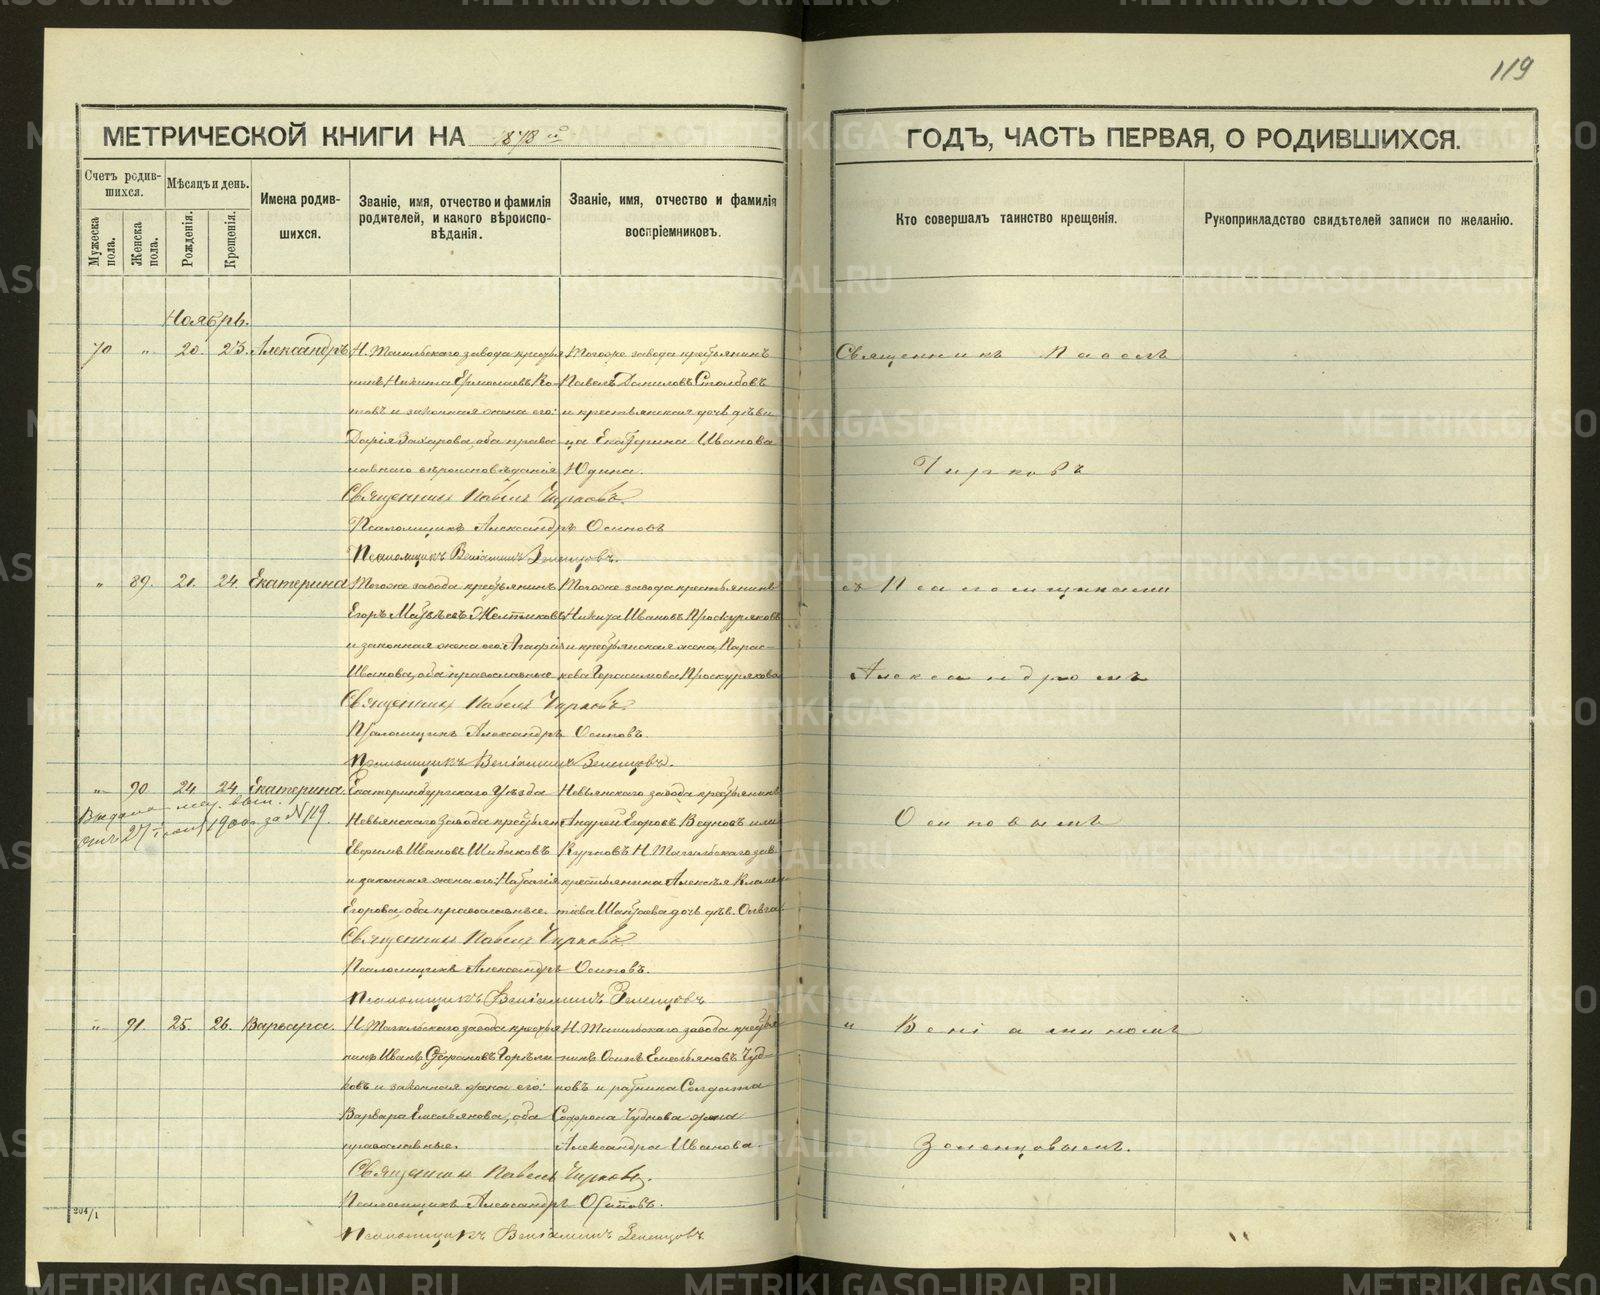 119
МЕТРИЧЕСКОЙ КНИГИ НА 1878 й ГОДЪ, ЧАСТЬ ПЕРВАЯ, О РОДИВШИХСЯ.
Счетъ родившихся.
Мужеска пола.
Женска пола.
Мѣсяцъ и день.
Рожденія.
Крещенія.
Имена родившихся.
Званіе, имя, отчество и фамилія родителей, и какого вѣроисповѣданія.
Званіе, имя, отчество и фамилія воспріемниковъ.
Кто совершалъ таинство крещенія.
Рукоприкладство свидѣтелей записи по желанію.
Ноябрь.
70 " 20. 23. Александръ
Н. Тагильскаго завода крестья
нинъ Никита Ермолаевъ Ко-
товъ и законная жена его:
Дарія Захарова, оба право-
славнаго вѣроисповѣданія
Тогоже завода крестьянинъ
Павелъ Даниловъ Столбовъ
и крестьянская дочь дѣви
ца Екатерина Иванова
Юдина.
Священникъ Павелъ Чирковъ.
Псаломщикъ Александръ Осиповъ
Псаломщикъ Веніаминъ Зеленцовъ.
" 89. 21. 24. Екатерина
Тогоже завода крестьянинъ
Егоръ Матвѣевъ Желтиковъ
и законная жена его: Агафія
Иванова, оба православные
Тогоже завода крестьянинъ
Никита Ивановъ Проскуряковъ
и крестьянская жена, Парас-
кева Герасимова Проскурякова
Священникъ Павелъ Чирковъ.
Псаломщикъ Александръ Осиповъ.
Псаломщикъ Веніаминъ Зеленцовъ.
" 90. 24. 24. Екатерина.
27 1900 за № 119.
Екатеринбургскаго Уѣзда
Невьянскаго завода крестьян
Евфимъ Ивановъ Шибаковъ
и законная жена его: Наталія
Егорова, оба православные
Невьянскаго завода крестьянинъ
Андрей Егоровъ Ведновъ или
Курновъ Н. Тагильскаго зав.
крестьянина Алексѣя
дочь дѣв. Ольга
Священникъ Павелъ Чирковъ.
Псаломщикъ Александръ Осиповъ.
Псаломщикъ Веніаминъ Зеленцовъ
" 91. 25. 26. Варвара.
Н. Тагильскаго завода крестья
нинъ Иванъ Стефановъ Горѣли-
ковъ и законная жена его:
Варвара Емельянова, оба
православные.
Н. Тагильскаго завода крестья
нинъ Осипъ Емельяновъ Чуд-
новъ и ратника Солдата
Софрона Чуднова жена
Александра Иванова.
Священникъ Павелъ Чирковъ.
Псаломщикъ Александръ Осиповъ.
Псаломщикъ Веніаминъ Зеленцовъ
Священникъ Павелъ
Чирковъ
съ Псаломщиками
Александромъ
Осиповымъ
и Веніаминомъ
Зеленцовымъ.
204/1
METRIKI.GASO-URAL.RU